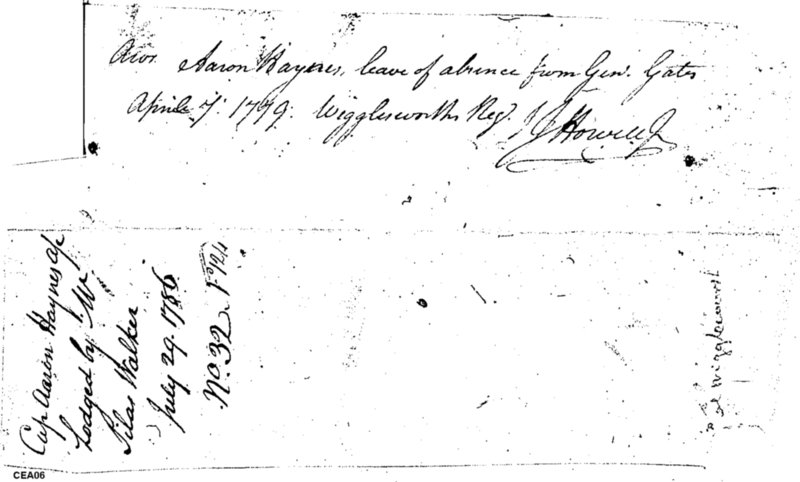 Aaron Haynes, leave of absence from Genl. Gates
April 7. 1779. Wigglesworths Regt.
J Howell Jr
Cap Aaron Haynes
Lodged by Mr
Silas Walker
July 29. 1786
No. 32
Wigglesworth
CEA06